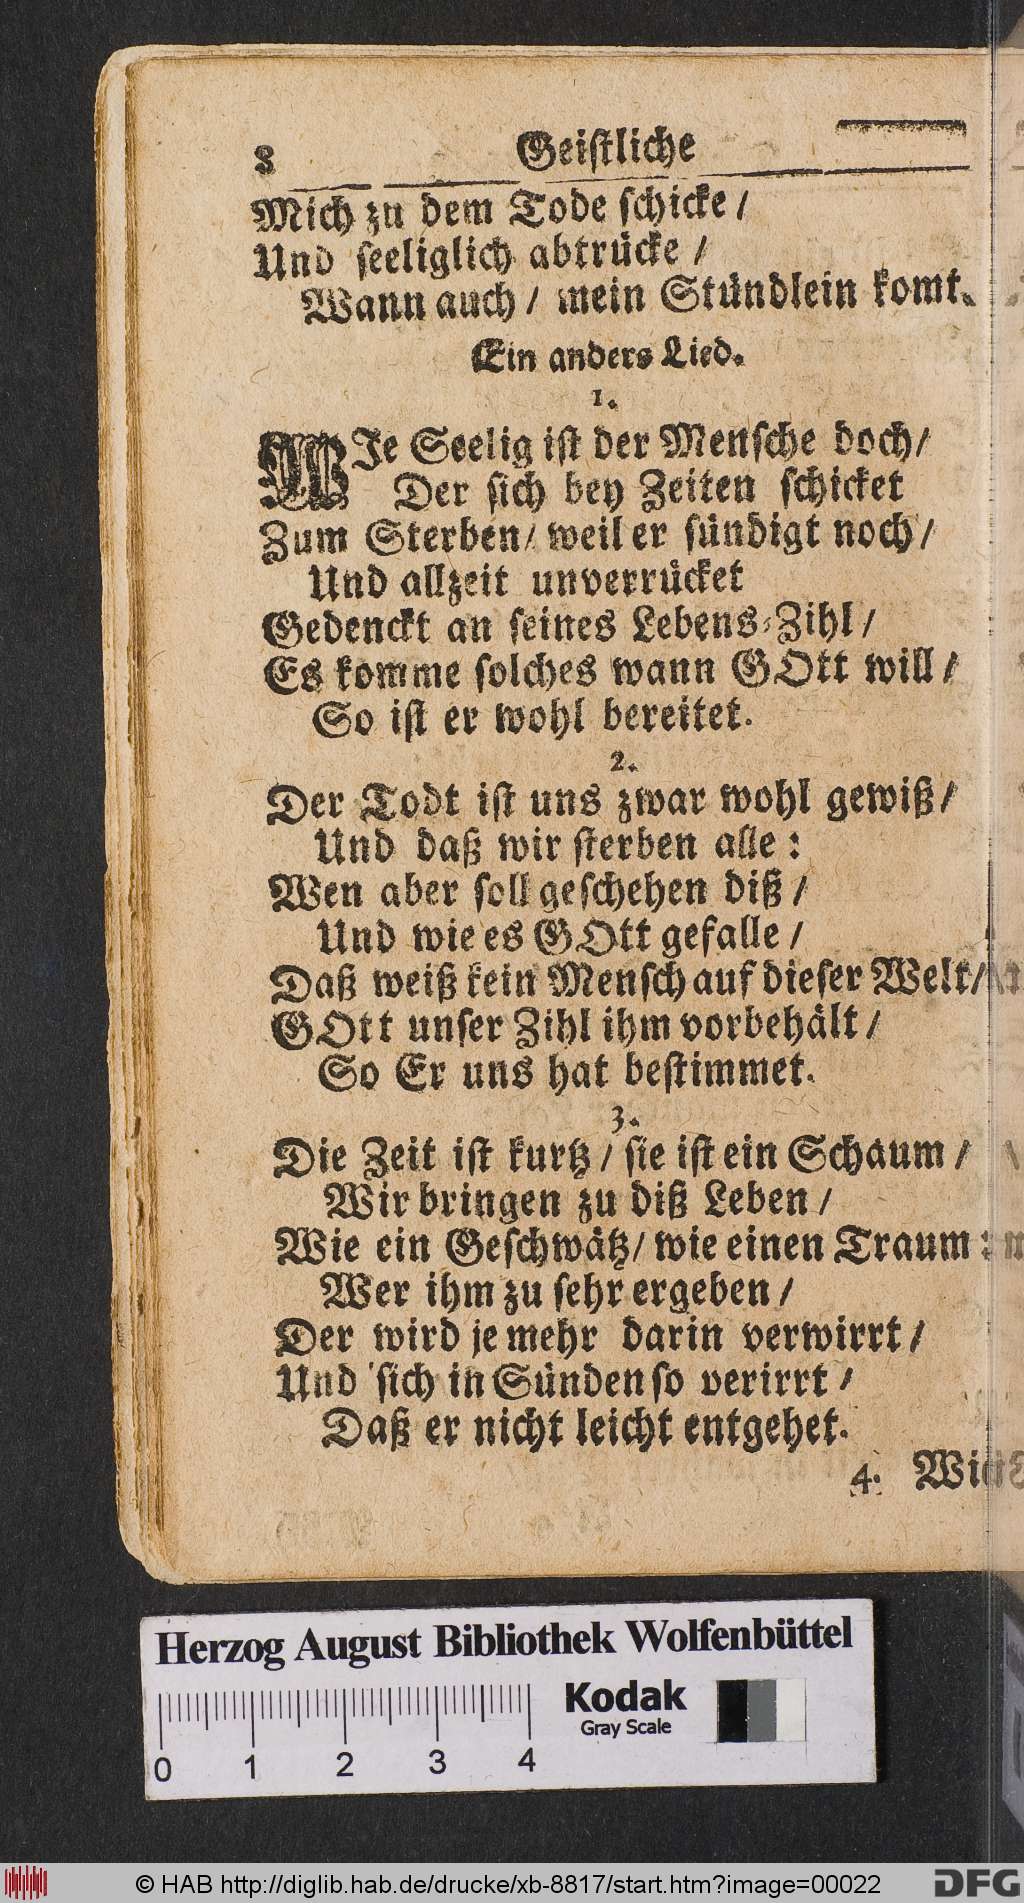 8 Geistliche
Mich zu dem Tode schicke /
Und seeliglich abtrücke /
Wann auch / mein Stündlein komt.
Ein anders Lied.
1.
WIe Seelig ist der Mensche doch /
Der sich bey Zeiten schicket
Zum Sterben / weil er sündigt noch /
Und allzeit unverrücket
Gedenckt an seines Lebens-Zihl /
Es komme solches wann GOtt will /
So ist er wohl bereitet.
2.
Der Todt ist uns zwar wohl gewiß /
Und daß wir sterben alle :
Wen aber soll geschehen diß /
Und wie es GOtt gefalle /
Daß weiß kein Mensch auf dieser Welt /
GOtt unser Zihl ihm vorbehält /
So Er uns hat bestimmet.
3.
Die Zeit ist kurtz / sie ist ein Schaum /
Wir bringen zu diß Leben /
Wie ein Geschwätz / wie einen Traum :
Wer ihm zu sehr ergeben /
Der wird je mehr darin verwirrt /
Und sich in Sünden so verirrt /
Daß er nicht leicht entgehet.
4.
Herzog August Bibliothek Wolfenbüttel
Kodak
Gray Scale
0 1 2 3 4
© HAB http://diglib.hab.de/drucke/xb-8817/start.htm?image=00022
DFG